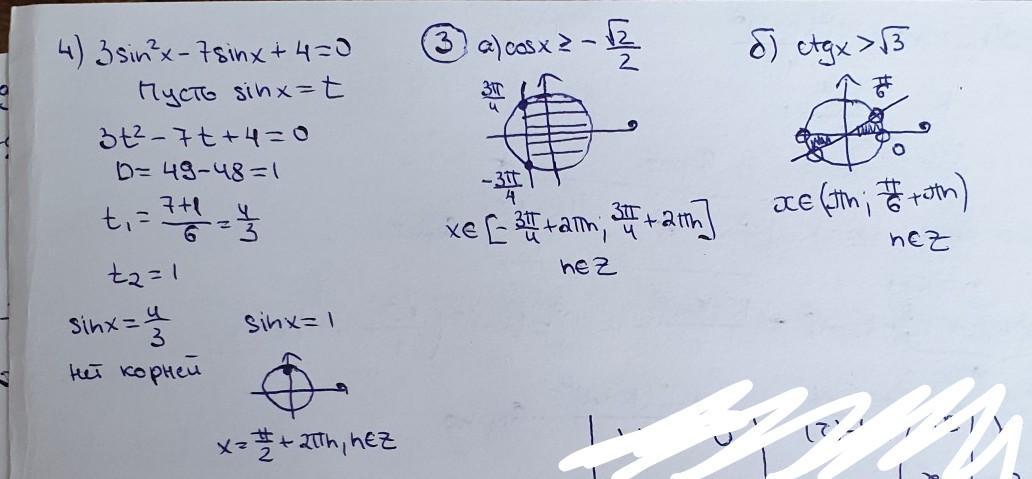 4) 3sin²x - 7sinx + 4 = 0
Пусть sinx = t
3t² - 7t + 4 = 0
D = 49 - 48 = 1
t₁ = (7+1)/6 = 4/3
t₂ = 1
sinx = 4/3 sinx = 1
нет корней
x = π/2 + 2πn, n∈Z
③ а) cosx ≥ -√2/2
3π/4
-3π/4
x∈[-3π/4 + 2πn; 3π/4 + 2πn]
n∈Z
б) ctgx > √3
π/6
0
x∈(πn; π/6 + πn)
n∈Z